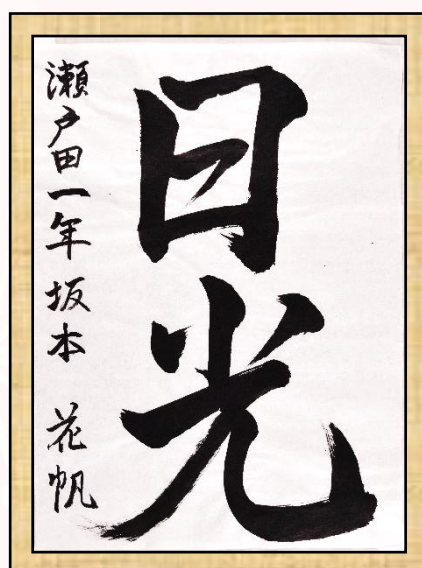 日光
瀬戸田一年 坂本 花帆